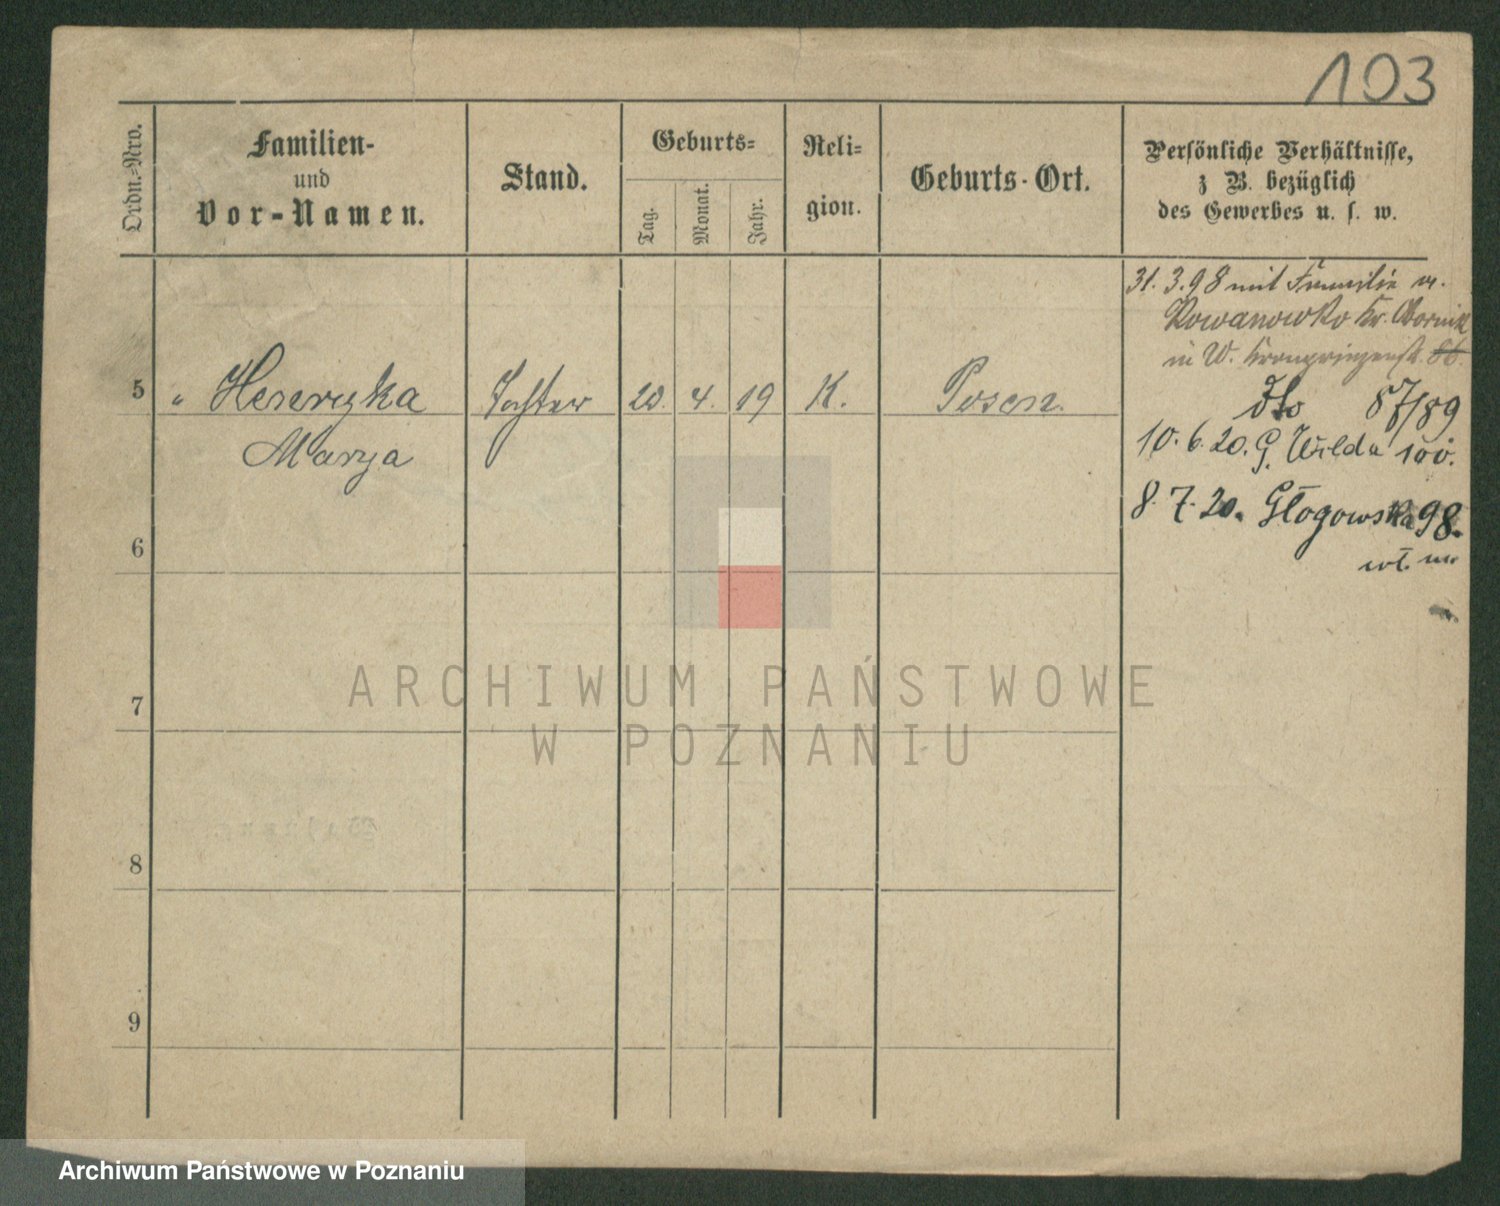 103
Ordn.-Nro.
Familien-
und
Vor-Namen.
Stand.
Geburts-
Tag.
Monat.
Jahr.
Reli-
gion.
Geburts-Ort.
Persönliche Verhältnisse,
z B. bezüglich
des Gewerbes u. s. w.
31. 3. 98 mit Familie v.
Rowanowko Kr. Obornik
in W. Kronprinzenst. 86.
5 " Henryka Tochter 20. 4. 19 K. Posen.
dto 87/89
Marya
10. 6. 20. G. Wilda 100.
8. 7. 20. Głogowska 98.
6
wł.
7
8
9
ARCHIWUM PAŃSTWOWE
W POZNANIU
Archiwum Państwowe w Poznaniu